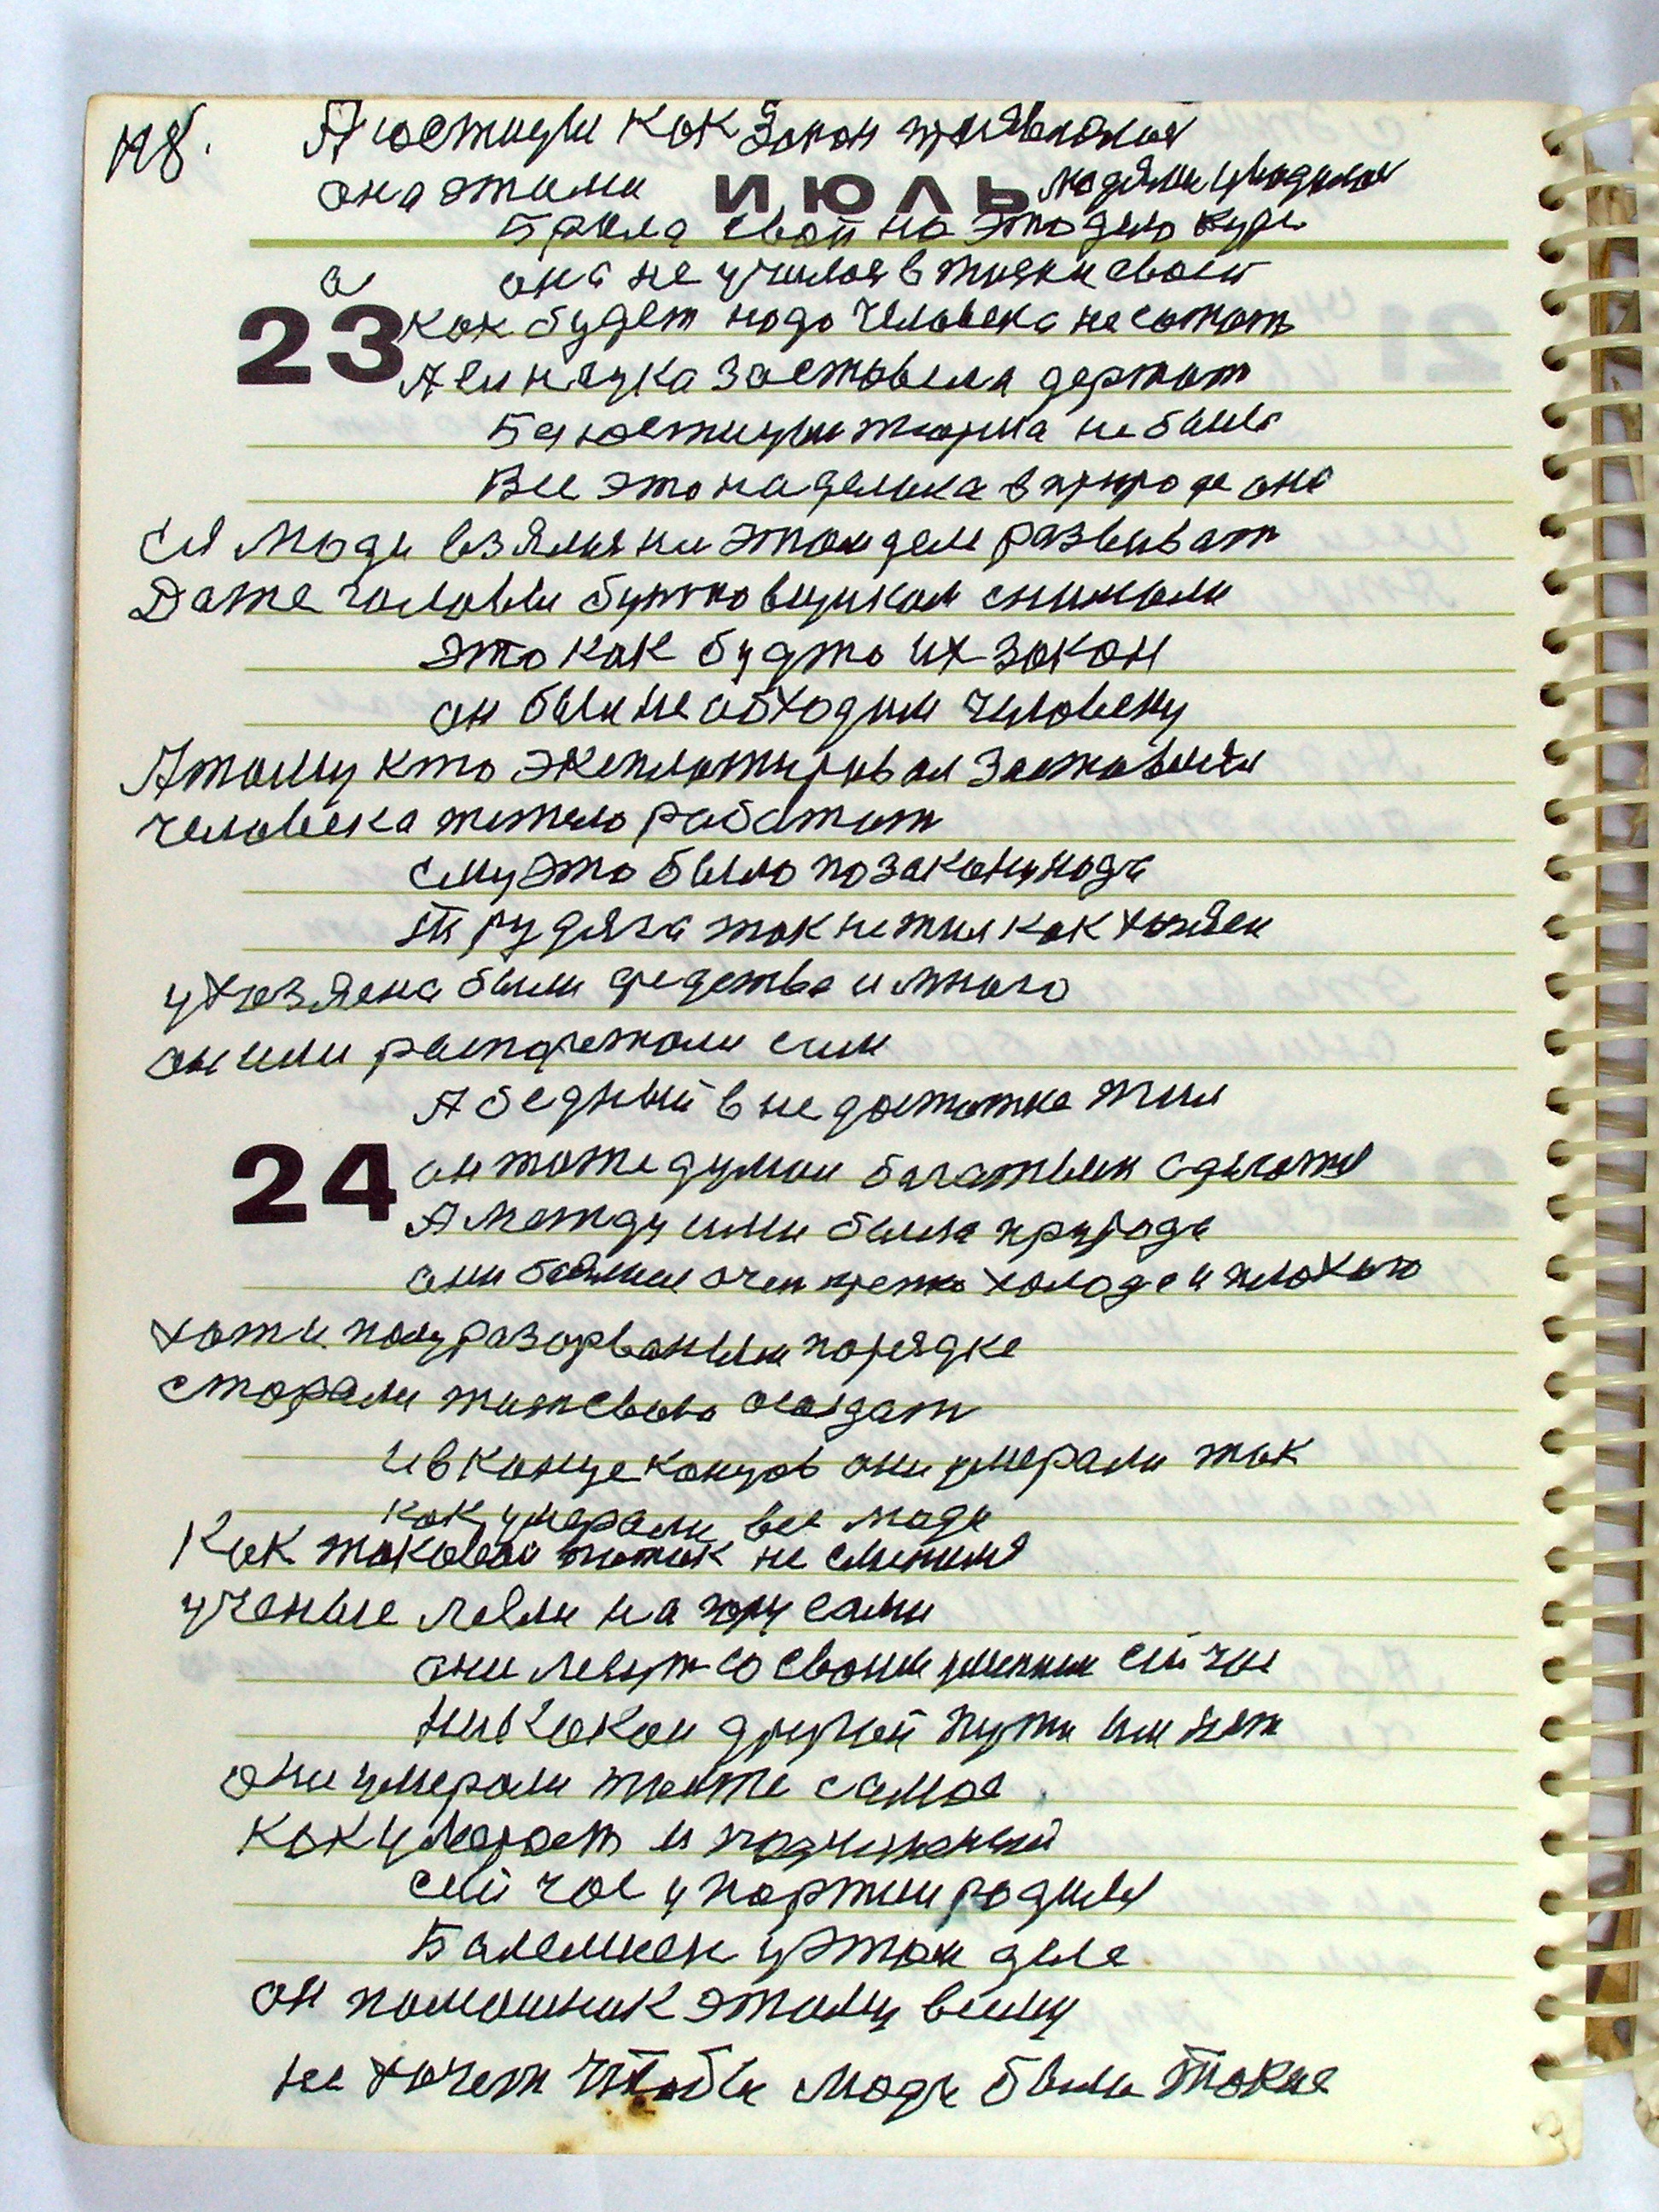 198.
А юстиция как закон проявлялася
она этими людями гводилася
ИЮЛЬ
Брала свой на это дело курс
а она не училася в жизни своей
23
как будет надо человека не сожать
А ей наука заставила держат
Без юстиции тюрма не была
Все это наделала в природе она
ся люди взялися на этом деле развиват
Даже головы бунтовщикам снимали
это как будто их закон
он был необходим человеку
А тому кто эксплотировал заставлял
человека тежело работат
ему это было по закону надо
Трудяга так не жил как хозяен
у хозяена были средства и много
он ими распорежали сам
А бедный в недостатке жил
24
он тоже думал богатым сделатся
А между ими была природа
они боялися очен крепко холода и плохого
хотя и полуразорваным порядке
старали жизнь свою создат
и в конце концов они умерали так
как умерали все люди
Как таковой поток не сменился
ученые легли на эту сами
они лежут со своим умением сейчас
никакой другой пути им нет
они умерали тоже самое
как умерает и подчиненый
сейчас у партии родился
Балемнек у этом деле
он помошник этому всему
не хочет чтобы люди были такие